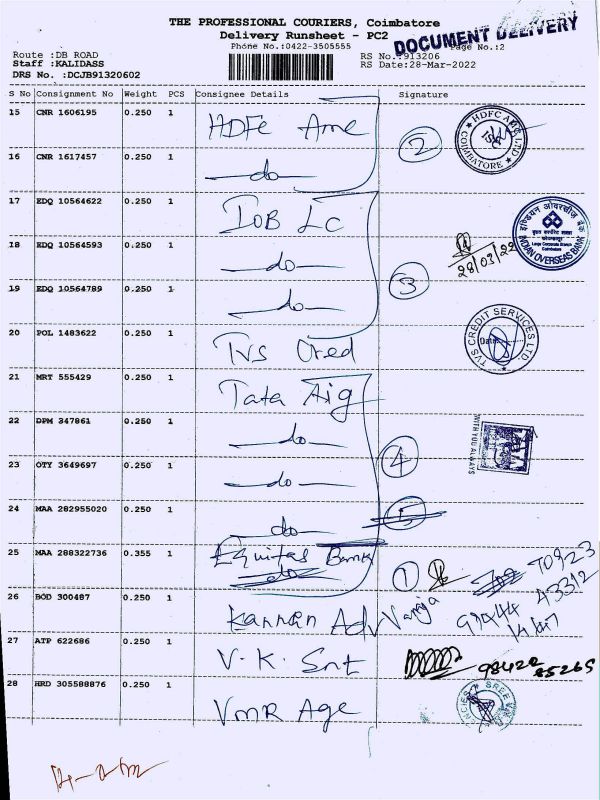 THE PROFESSIONAL COURIERS, Coimbatore
Delivery Runsheet - PC2
Phone No.:0422-3505555
Page No.:2
DOCUMENT DELIVERY
Route :DB ROAD
Staff :KALIDASS
DRS No. :DCJB91320602
RS No.:913206
RS Date:28-Mar-2022
S No Consignment No Weight PCS Consignee Details Signature
15 CNR 1606195 0.250 1 HDFC Amc
16 CNR 1617457 0.250 1 do
2
HDFC AMC LTD
COIMBATORE
17 EDQ 10564622 0.250 1 IOB LC
18 EDQ 10564593 0.250 1 do
28/03/22
इण्डियन ओवरसीज़ बैंक
Large Corporate Branch
Coimbatore
INDIAN OVERSEAS BANK
19 EDQ 10564789 0.250 1 do
3
20 POL 1483622 0.250 1 Tvs Cred
TVS CREDIT SERVICES LTD.
Date:
21 MRT 555429 0.250 1 Tata Aig
22 DPM 347861 0.250 1 do
WITH YOU ALWAYS
23 OTY 3649697 0.250 1 do
4
24 MAA 282955020 0.250 1 do
25 MAA 288322736 0.355 1 Equitas Bank
1
26 BOD 300487 0.250 1 Kannan Adv
27 ATP 622686 0.250 1 V.K. Snt
98422
85265
28 HRD 305588876 0.250 1 VMR Age
SREE